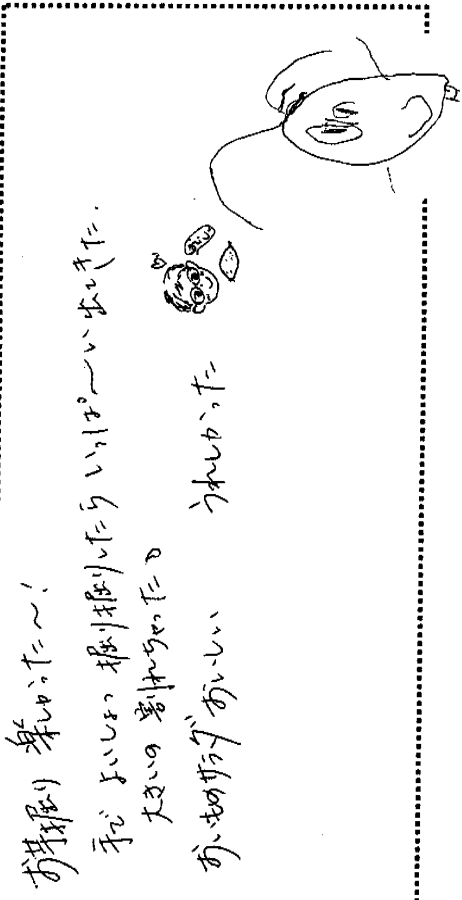 お芋掘り 楽しかった～!
手で よいしょっ 掘り掘りしたら いっぱ～い出てきた.
大きいの 割れちゃった。
おいものサラダ おいしい うれしかった